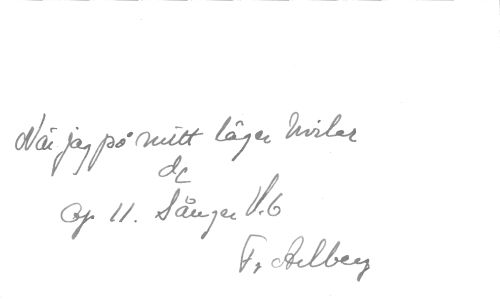 När jag på mitt läger hvilar
dc
op 11. Sånger V.6
Fr. Arlberg